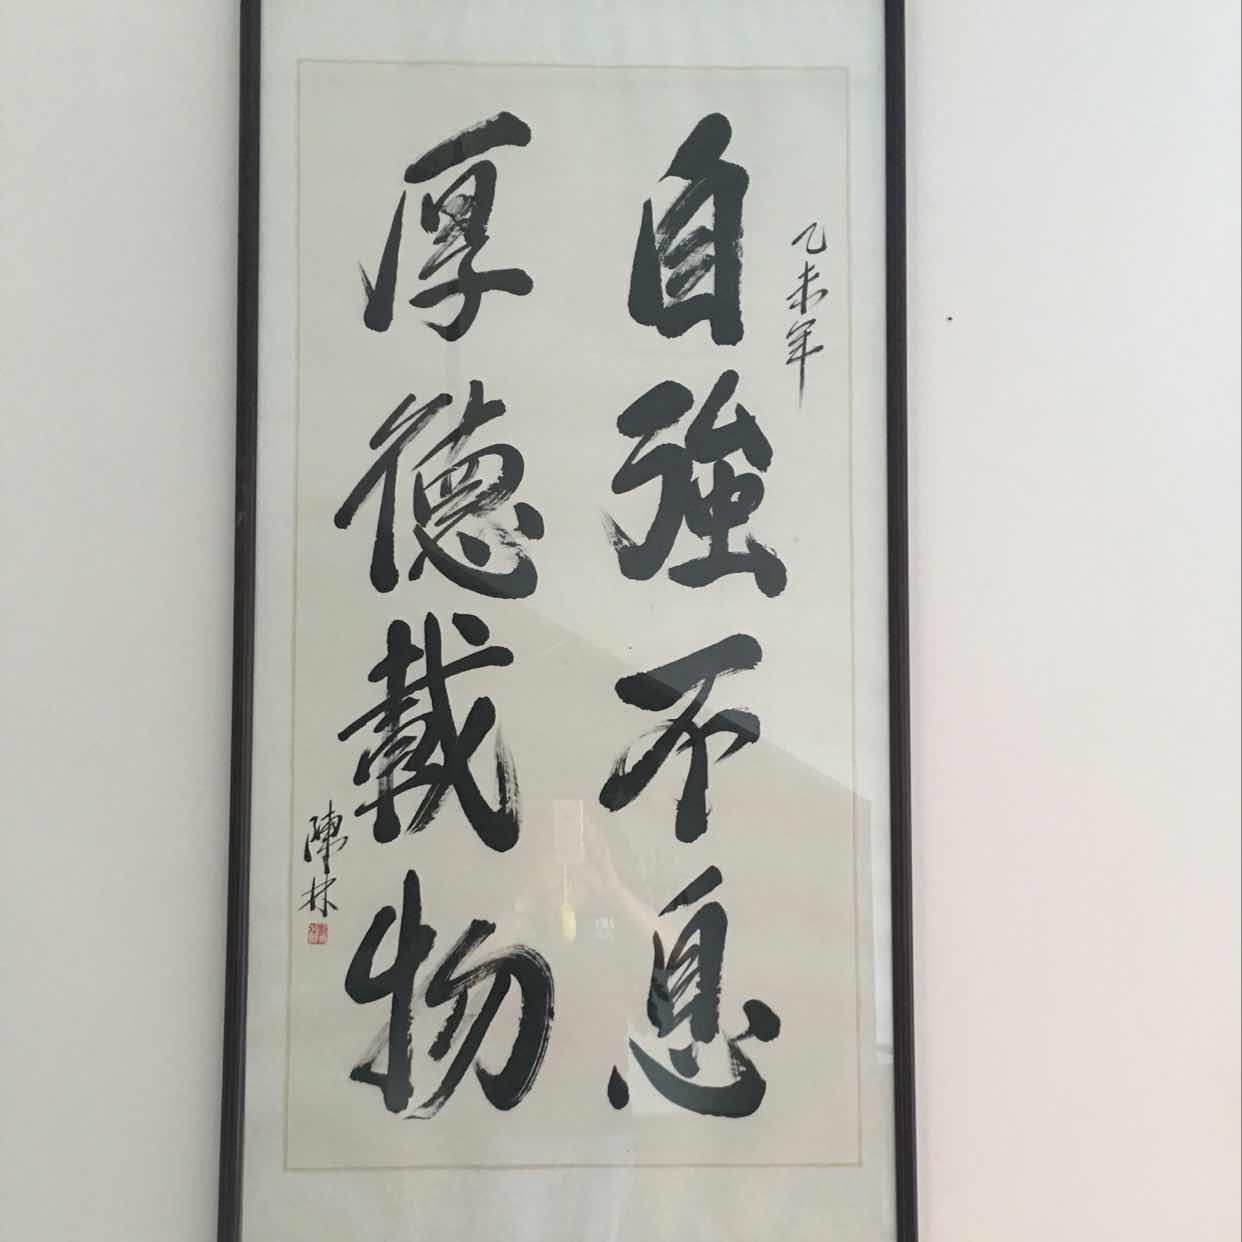 乙未年
自強不息
厚德載物
陳林